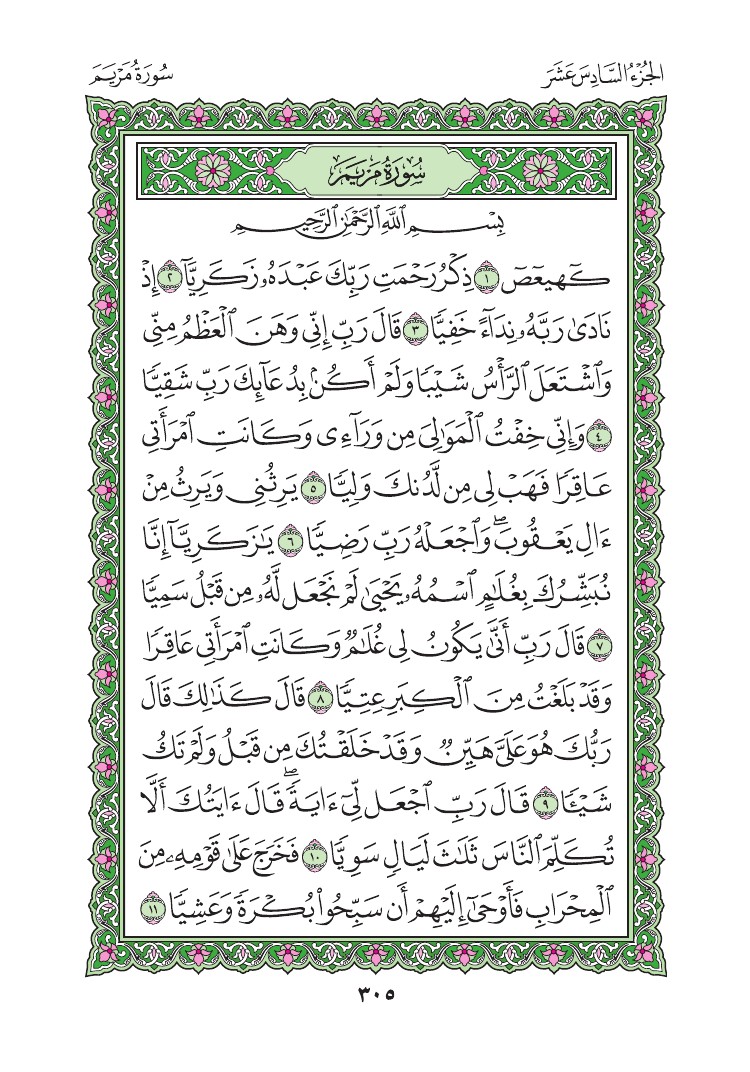 الجزء السادس عشر
سورة مريم
سُورَةُ مَرْيَمَ
بِسْمِ ٱللَّهِ ٱلرَّحْمَٰنِ ٱلرَّحِيمِ
كٓهيعٓصٓ ١ ذِكْرُ رَحْمَتِ رَبِّكَ عَبْدَهُۥ زَكَرِيَّآ ٢ إِذْ
نَادَىٰ رَبَّهُۥ نِدَآءً خَفِيًّا ٣ قَالَ رَبِّ إِنِّى وَهَنَ ٱلْعَظْمُ مِنِّى
وَٱشْتَعَلَ ٱلرَّأْسُ شَيْبًا وَلَمْ أَكُنۢ بِدُعَآئِكَ رَبِّ شَقِيًّا
٤ وَإِنِّى خِفْتُ ٱلْمَوَٰلِىَ مِن وَرَآءِى وَكَانَتِ ٱمْرَأَتِى
عَاقِرًا فَهَبْ لِى مِن لَّدُنكَ وَلِيًّا ٥ يَرِثُنِى وَيَرِثُ مِنْ
ءَالِ يَعْقُوبَ ۖ وَٱجْعَلْهُ رَبِّ رَضِيًّا ٦ يَٰزَكَرِيَّآ إِنَّا
نُبَشِّرُكَ بِغُلَٰمٍ ٱسْمُهُۥ يَحْيَىٰ لَمْ نَجْعَل لَّهُۥ مِن قَبْلُ سَمِيًّا
٧ قَالَ رَبِّ أَنَّىٰ يَكُونُ لِى غُلَٰمٌ وَكَانَتِ ٱمْرَأَتِى عَاقِرًا
وَقَدْ بَلَغْتُ مِنَ ٱلْكِبَرِ عِتِيًّا ٨ قَالَ كَذَٰلِكَ قَالَ
رَبُّكَ هُوَ عَلَىَّ هَيِّنٌ وَقَدْ خَلَقْتُكَ مِن قَبْلُ وَلَمْ تَكُ
شَيْـًٔا ٩ قَالَ رَبِّ ٱجْعَل لِّىٓ ءَايَةً ۚ قَالَ ءَايَتُكَ أَلَّا
تُكَلِّمَ ٱلنَّاسَ ثَلَٰثَ لَيَالٍ سَوِيًّا ١٠ فَخَرَجَ عَلَىٰ قَوْمِهِۦ مِنَ
ٱلْمِحْرَابِ فَأَوْحَىٰٓ إِلَيْهِمْ أَن سَبِّحُوا۟ بُكْرَةً وَعَشِيًّا ١١
٣٠٥